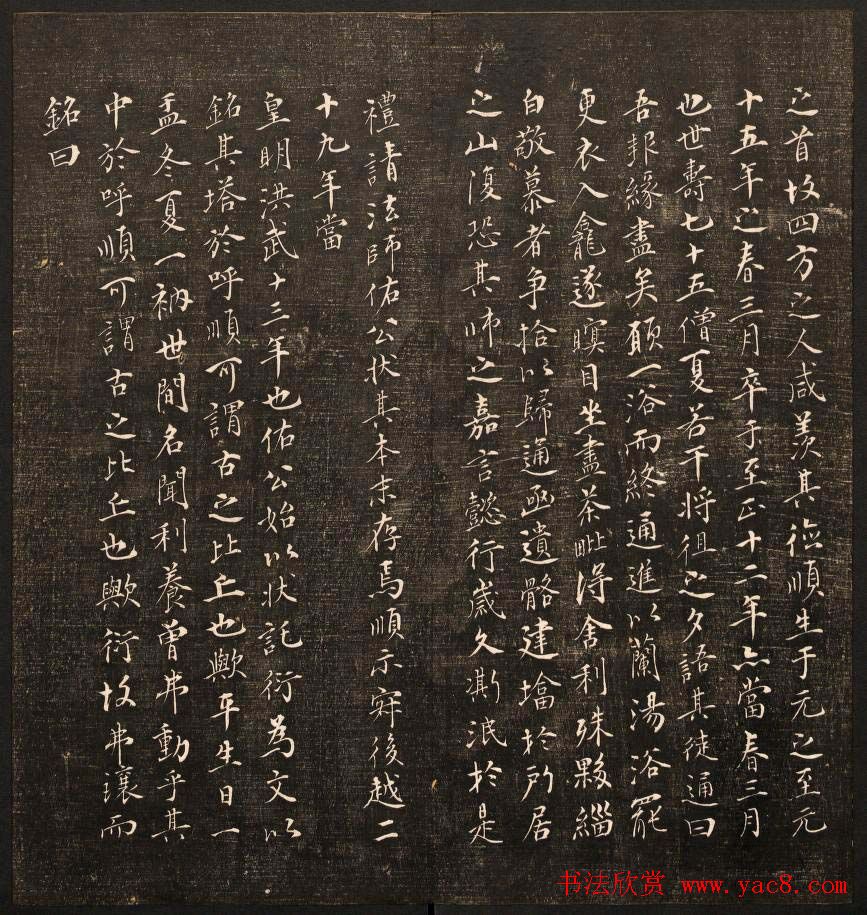 之首故四方之人咸羡其德順生于元之至元
十五年之春三月卒于至正十二年亦當春三月
也世壽七十五僧夏若干將徂之夕語其徒通曰
吾報緣盡矣願一浴而終通進以蘭湯浴罷
更衣入龕遂瞑目坐盡茶毗得舍利殊夥緇
白敬慕者爭拾以歸通函遺骼建墖於所居
之山復恐其師之嘉言懿行歲久澌泯於是
禮請法師佑公狀其本末存焉順示寂後越二
十九年當
皇明洪武十三年也佑公始以狀託衍為文以
銘其塔於呼順可謂古之比丘也歟平生日一
盂冬夏一衲世間名聞利養曾弗動乎其
中於呼順可謂古之比丘也歟衍故弗讓而
銘曰
书法欣赏 www.yac8.com